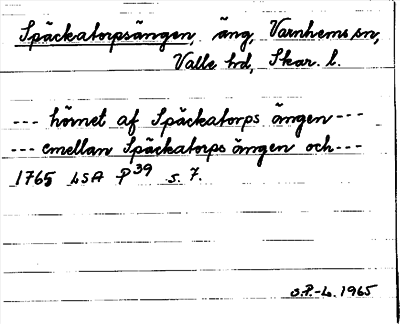 Späckatorpsängen, äng, Varnhems sn,
Valle hd, Skar. l.
--- hörnet af Späckatorps ängen ---
--- emellan Späckatorps ängen och ---
1765 LSA P39 s. 7.
O.P.-L. 1965